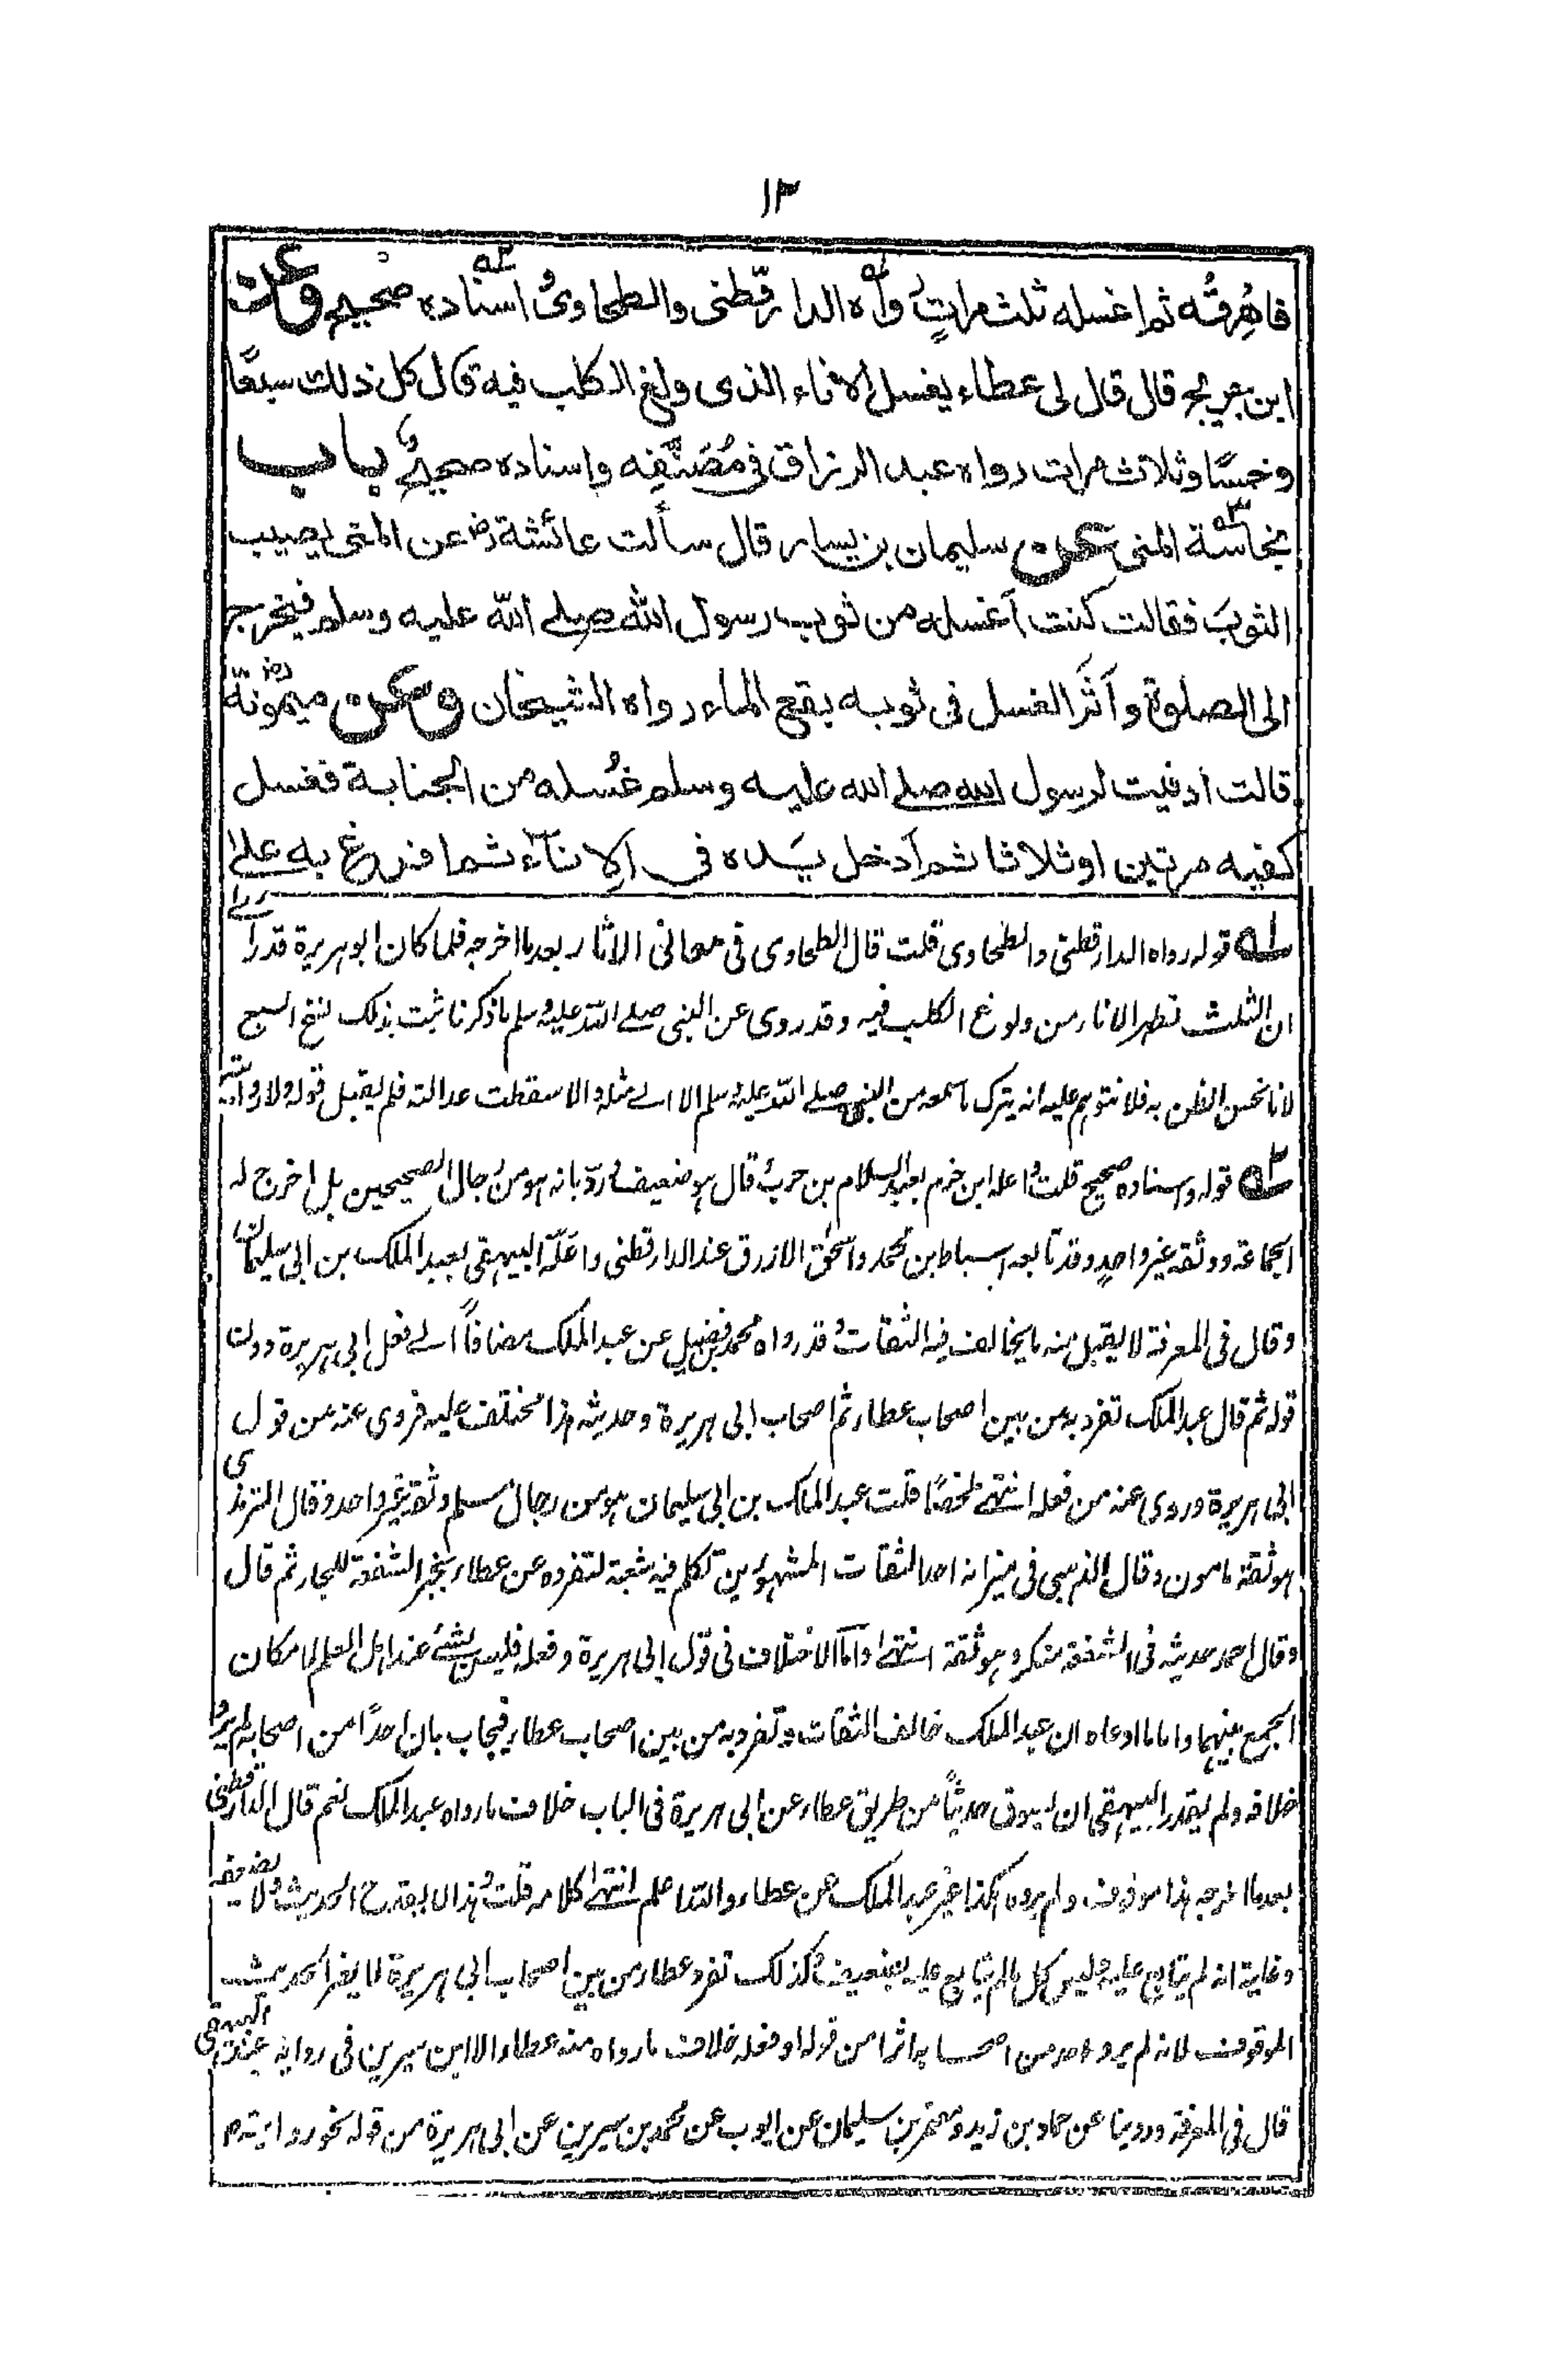 ١٣
فاهرقه ثم اغسله ثلث مرات رواه الدارقطنى والطحاوى واسناده صحيح وعن
ابن جريج قال قال لى عطاء يغسل الاناء الذى ولغ الكلب فيه قال كل ذلك سبعًا
وخمسًا وثلاث مرات رواه عبد الرزاق فى مُصَنَّفِه واسناده صحيح باب
نجاسة المنى عن سليمان بن يسار قال سألت عائشة رض عن المنى يصيب
الثوبَ فقالت كنت اَغسله من ثوب رسول الله صلى الله عليه وسلم فيخرج
الى الصلوة واَثَر الغسل فى ثوبه بقع الماء رواه الشيخان وعن ميمونة رض
قالت ادنيت لرسول الله صلى الله عليه وسلم غُسله من الجنابة فغسل
كفيه مرتين او ثلاثا ثم اَدخل يَده فى الاناء ثم افرغ به على
له قوله رواه الدارقطنى والطحاوى قلت قال الطحاوى فى معانى الاثار بعد ما اخرجه فلما كان ابو هريرة قد رأى
ان الثلث تطهر الاناء من ولوغ الكلب فيه وقد روى عن النبى صلى الله عليه وسلم ما ذكرنا ثبت بذلك نسخ السبع
لانا نحسن الظن به فلا نتوهم عليه انه يترك ما سمعه من النبى صلى الله عليه وسلم الا الى مثله والا سقطت عدالته فلم يقبل قوله ولا روايته
٢ه قوله واسناده صحيح قلت واعله ابن حزم بعبد السلام بن حرب وقال هو ضعيف ورد بانه هو من رجال الصحيحين بل اخرج له
الجماعة ووثقه غير واحدٍ وقد تابعه اسباط بن محمد واسحٰق الازرق عند الدارقطنى واعلّه البيهقى بعبد الملك بن ابى سليمان
وقال فى المعرفة لا يقبل منه ما يخالف فيه الثقات وقد رواه محمد بن فضيل عن عبد الملك مضافاً الى فعل ابى هريرة دون
قوله ثم قال عبد الملك تفرد به من بين اصحاب عطاء ثم اصحاب ابى هريرة وحديثه هذا مختلف عليه فروى عنه من قول
ابى هريرة وروى عنه من فعله انتهى ملخصًا قلت عبد الملك بن ابى سليمان هو من رجال مسلم وثقه غير واحد وقال الترمذى
هو ثقة مامون وقال الذهبى فى ميزانه احد الثقات المشهورين تكلم فيه شعبة لتفرده عن عطاء بخبر الشفعة للجار ثم قال
وقال احمد حديثه فى الشفعة منكر وهو ثقة انتهى واما الاختلاف فى قول ابى هريرة وفعله فليس بشئ عند اهل العلم لامكان
الجمع بينهما واما ما ادعاه ان عبد الملك خالف الثقات وتفرد به من بين اصحاب عطاء فيجاب بان احدًا من اصحابه لم يرو
خلافه ولم يقدر البيهقى ان يسوق حديثاً من طريق عطاء عن ابى هريرة فى الباب خلاف ما رواه عبد الملك نعم قال الدارقطنى
بعد ما اخرجه هذا موقوف ولم يروه هكذا غير عبد الملك عن عطاء والله اعلم انتهى كلامه قلت وهذا لا يقدح الحديث ولا يضعفه
وغايته انه لم يتابع عليه وليس كل ما لم يتابع عليه بضعيف وكذلك تفرد عطاء من بين اصحاب ابى هريرة لا يضر الحديث
الموقوف لانه لم يرو احد من اصحابه اثرا من قوله او فعله خلاف ما رواه منه عطاء الا ابن سيرين فى رواية عند البيهقى
قال فى المعرفة وروينا عن حماد بن زيد ومعتمر بن سليمان عن ايوب عن محمد بن سيرين عن ابى هريرة من قوله نحو روايتهم